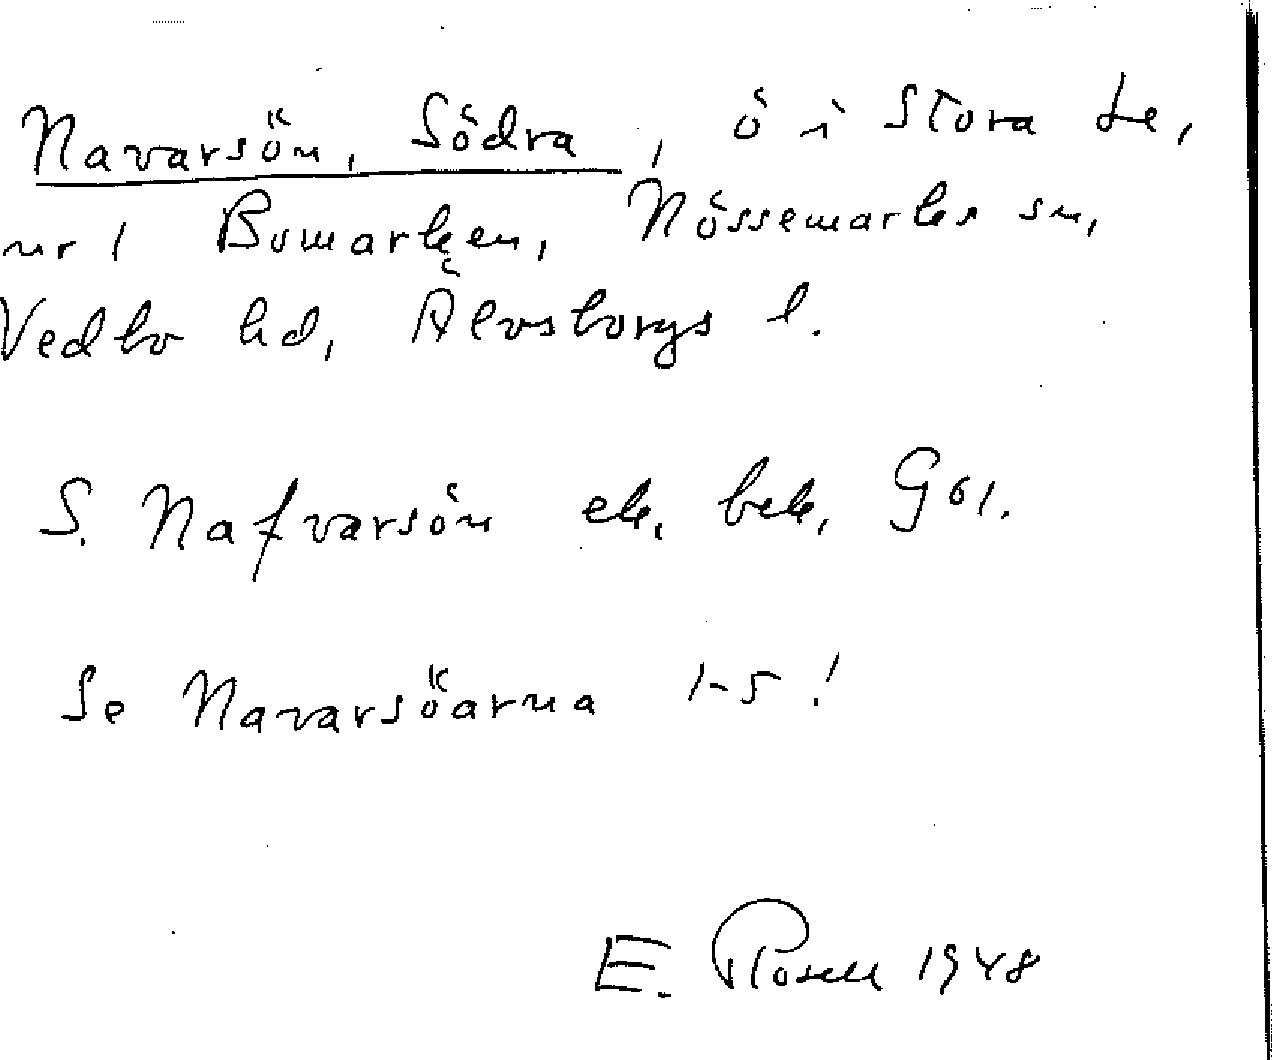 Navarsön, Södra, ö i Stora Le,
nr 1 Bomarken, Nössemarks sn,
Vedbo hd, Älvsborgs l.
S. Nafvarsön ek. bek, G61.
Se Navarsöarna 1-5!
E. Rosell 1948